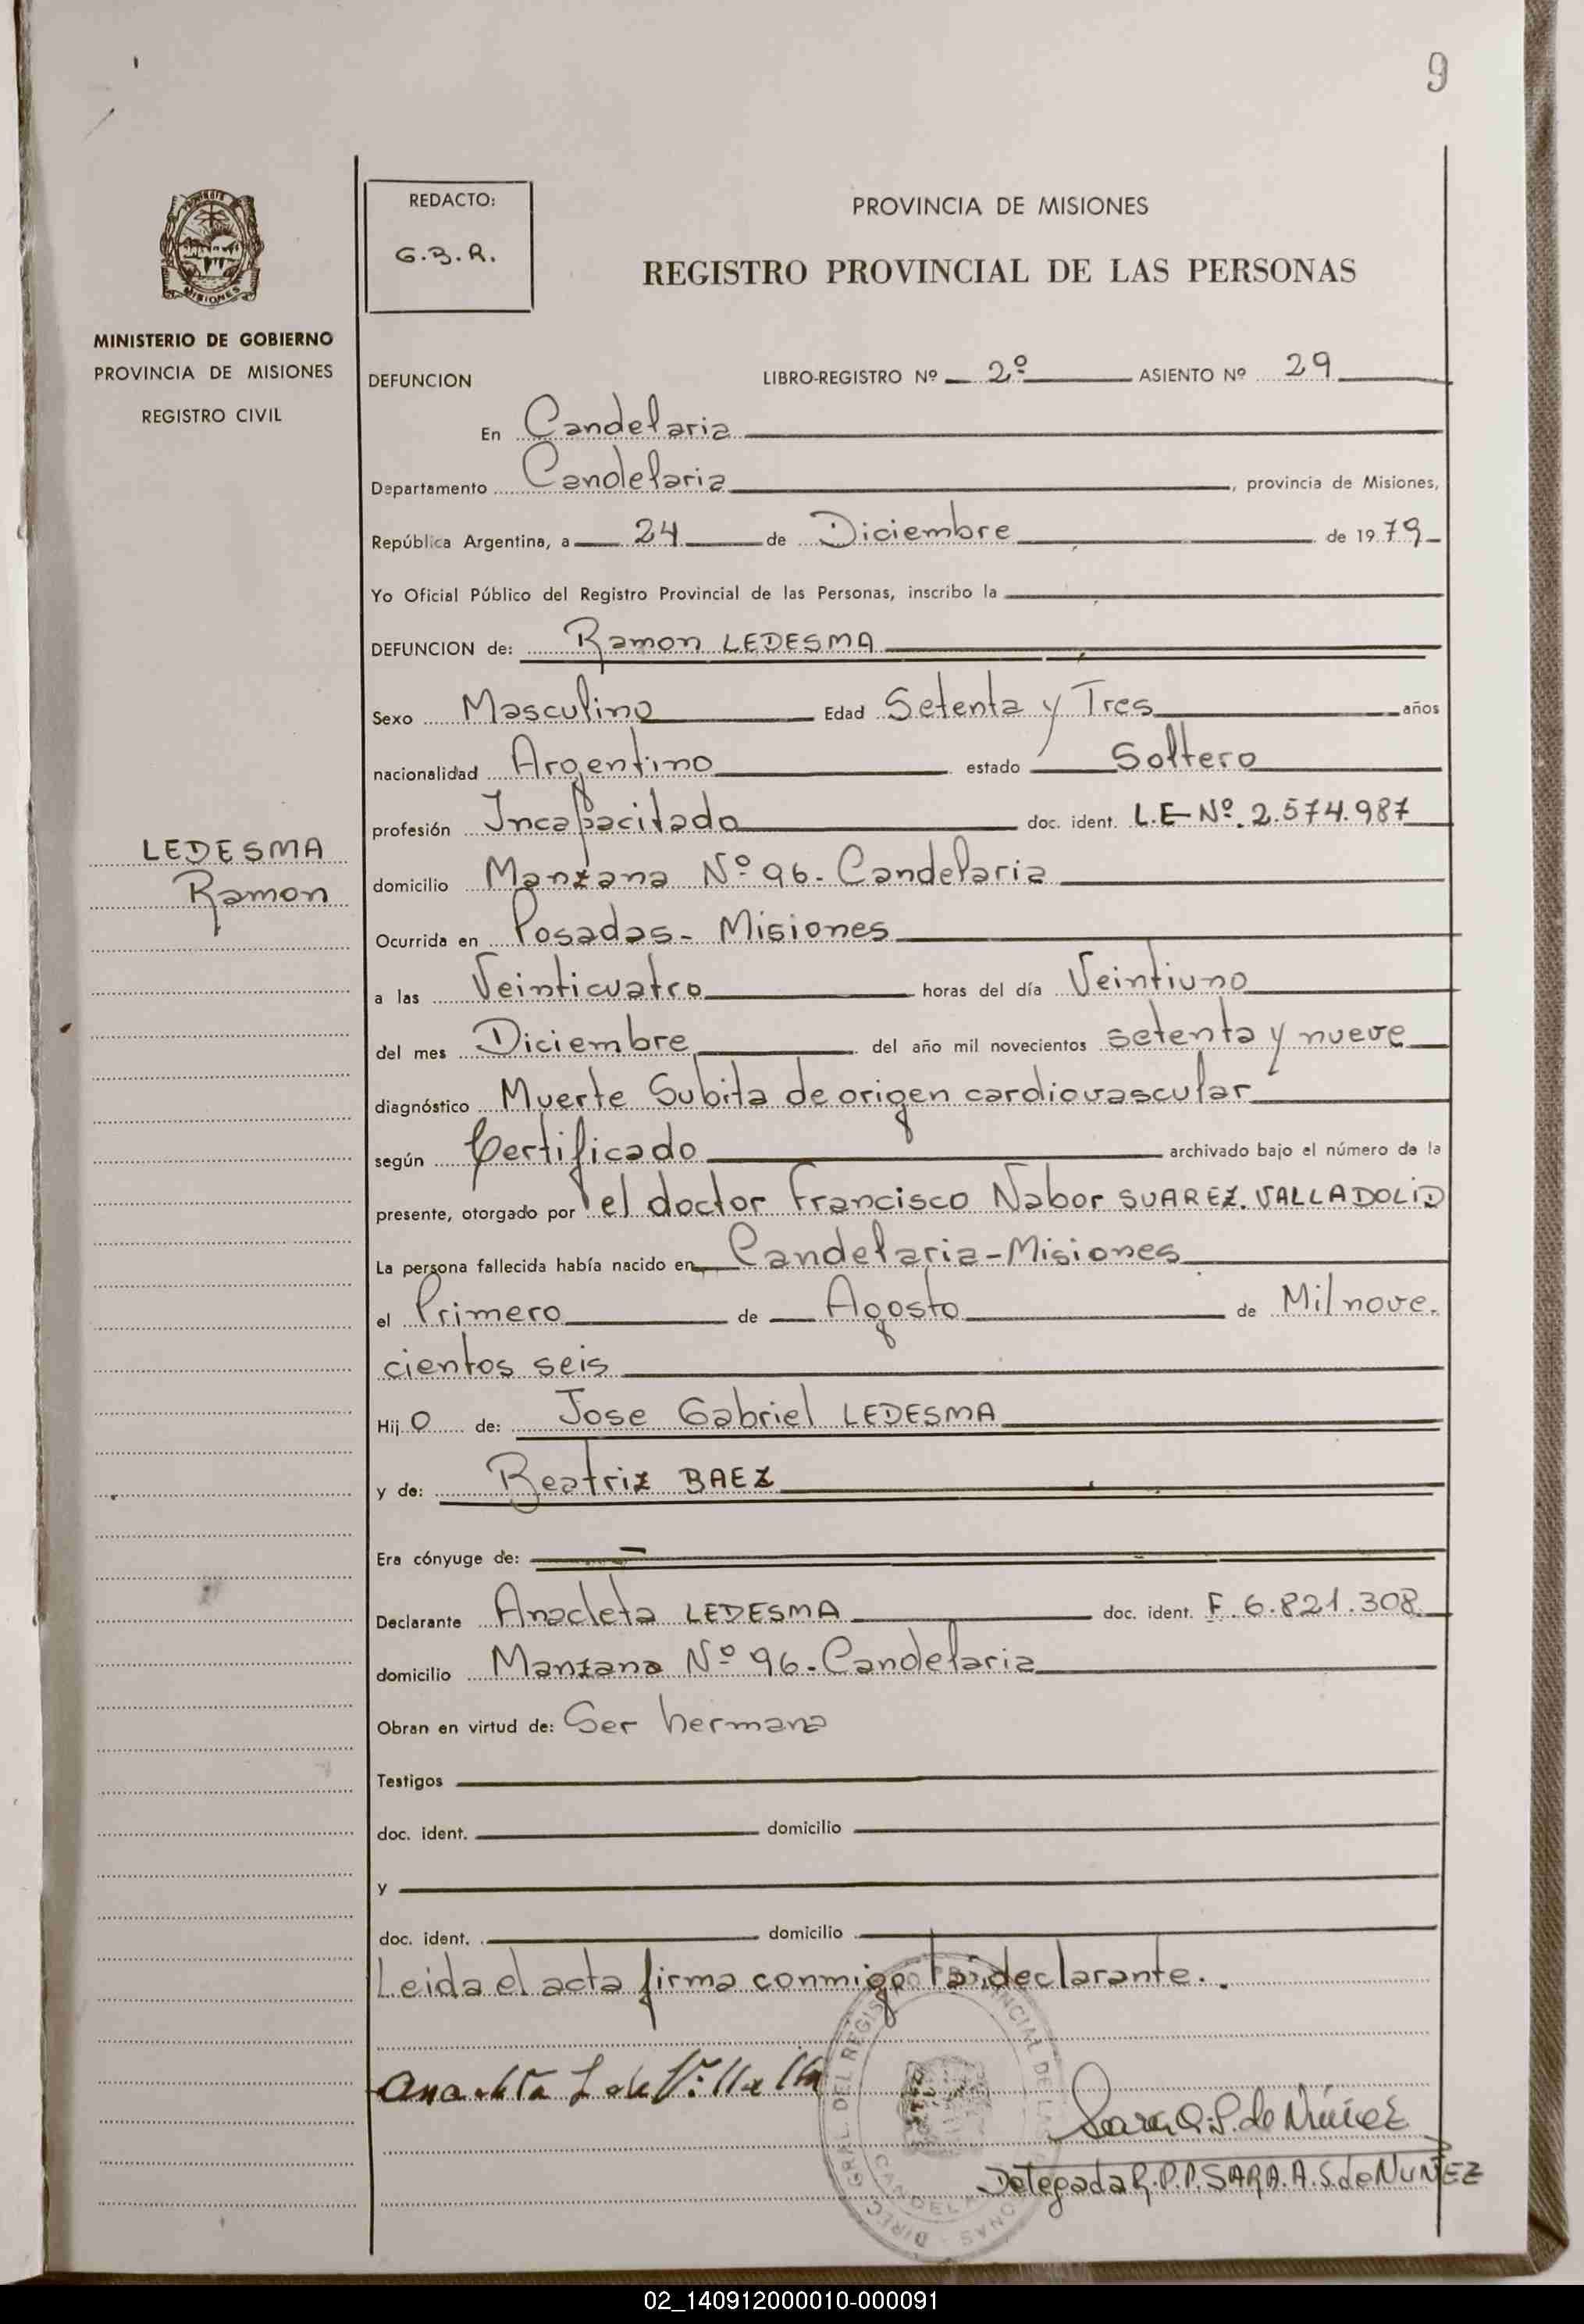 9
REDACTO:
G.B.R.
PROVINCIA DE MISIONES
REGISTRO PROVINCIAL DE LAS PERSONAS
MISIONES
MINISTERIO DE GOBIERNO
PROVINCIA DE MISIONES
REGISTRO CIVIL
DEFUNCION LIBRO-REGISTRO Nº 2º ASIENTO Nº 29
En Candelaria
Departamento Candelaria, provincia de Misiones,
República Argentina, a 24 de Diciembre de 1979
Yo Oficial Público del Registro Provincial de las Personas, inscribo la
DEFUNCION de: Ramon LEDESMA
Sexo Masculino Edad Setenta y Tres años
nacionalidad Argentino estado Soltero
profesión Incapacitado doc. ident. L.E Nº. 2.574.987
LEDESMA
Ramon
domicilio Manzana Nº 96. Candelaria
Ocurrida en Posadas - Misiones
a las Veinticuatro horas del día Veintiuno
del mes Diciembre del año mil novecientos setenta y nueve
diagnóstico Muerte Subita de origen cardiovascular
según Certificado archivado bajo el número de la
presente, otorgado por el doctor Francisco Nabor SUAREZ. VALLADOLID
La persona fallecida había nacido en Candelaria - Misiones
el Primero de Agosto de Mil nove.
cientos seis
Hij O de: Jose Gabriel LEDESMA
y de: Beatriz BAEZ
Era cónyuge de:
Declarante Anacleta LEDESMA doc. ident. F. 6.821.308
domicilio Manzana Nº 96. Candelaria
Obran en virtud de: Ser hermana
Testigos
doc. ident. domicilio
y
doc. ident. domicilio
Leida el acta firma conmigo la declarante.
Anacleta L de Villalba
Sara A. S. de Núñez
Delegada R.P.P. SARA. A. S. de NUÑEZ
02_140912000010-000091